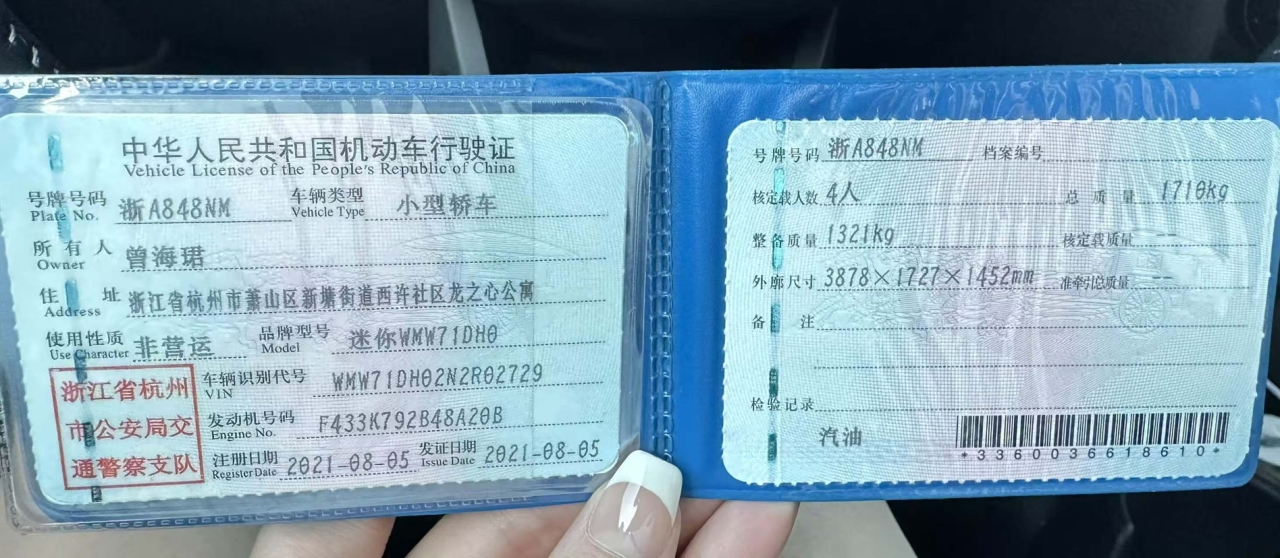 中华人民共和国机动车行驶证
Vehicle License of the People's Republic of China
号牌号码 浙A848NM 车辆类型 小型轿车
Plate No. Vehicle Type
所有人 曾海珺
Owner
住址 浙江省杭州市萧山区新塘街道西许社区龙之心公寓
Address
使用性质 非营运 品牌型号 迷你WMW71DH0
Use Character Model
浙江省杭州
市公安局交
通警察支队
车辆识别代号 WMW71DH02N2R02729
VIN
发动机号码 F433K792B48A20B
Engine No.
注册日期 2021-08-05 发证日期 2021-08-05
Register Date Issue Date
号牌号码 浙A848NM 档案编号
核定载人数 4人 总质量 1710kg
整备质量 1321kg 核定载质量 --
外廓尺寸 3878×1727×1452mm 准牵引总质量 --
备注
检验记录
汽油
*3360036618610*